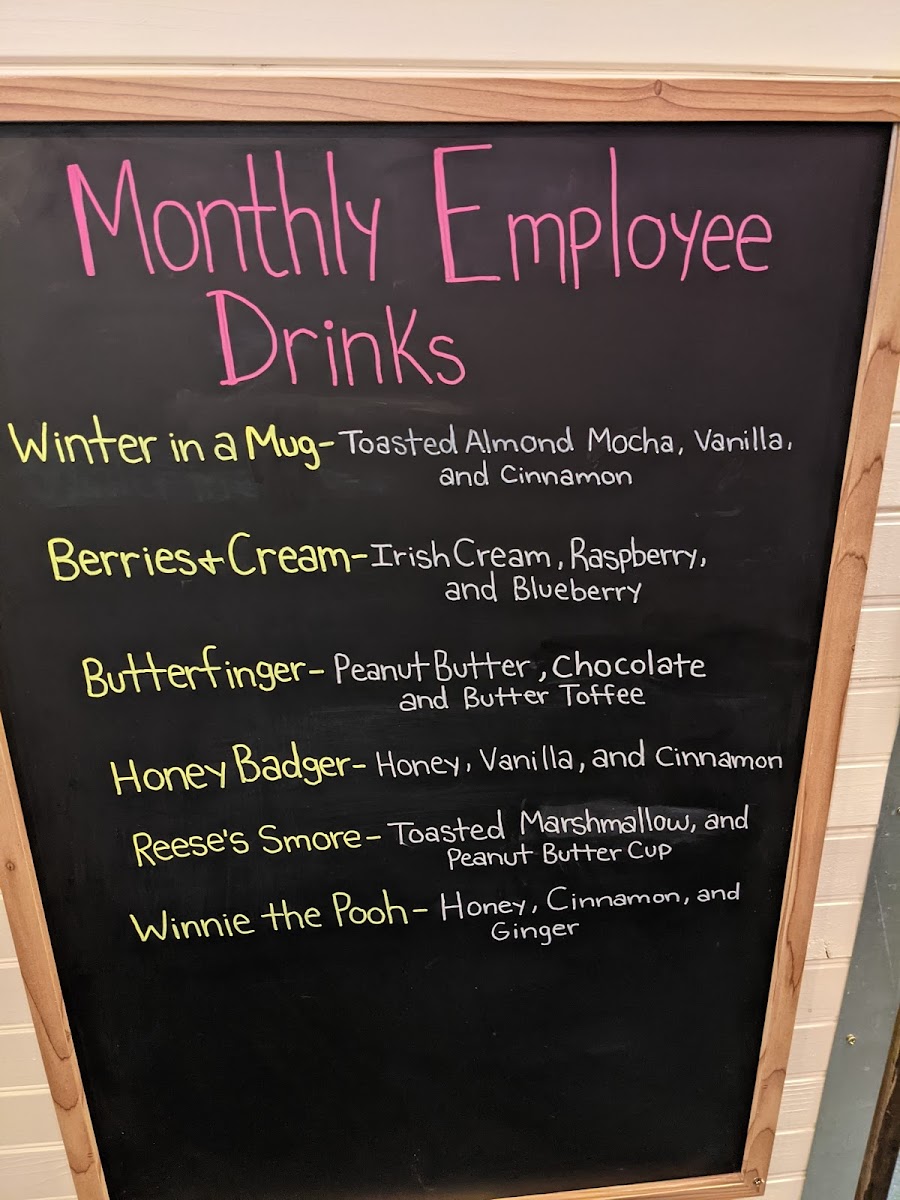 Monthly Employee
Drinks
Winter in a Mug- Toasted Almond Mocha, Vanilla,
and Cinnamon
Berries + Cream- Irish Cream, Raspberry,
and Blueberry
Butterfinger- Peanut Butter, Chocolate
and Butter Toffee
Honey Badger- Honey, Vanilla, and Cinnamon
Reese's Smore- Toasted Marshmallow, and
Peanut Butter Cup
Winnie the Pooh- Honey, Cinnamon, and
Ginger